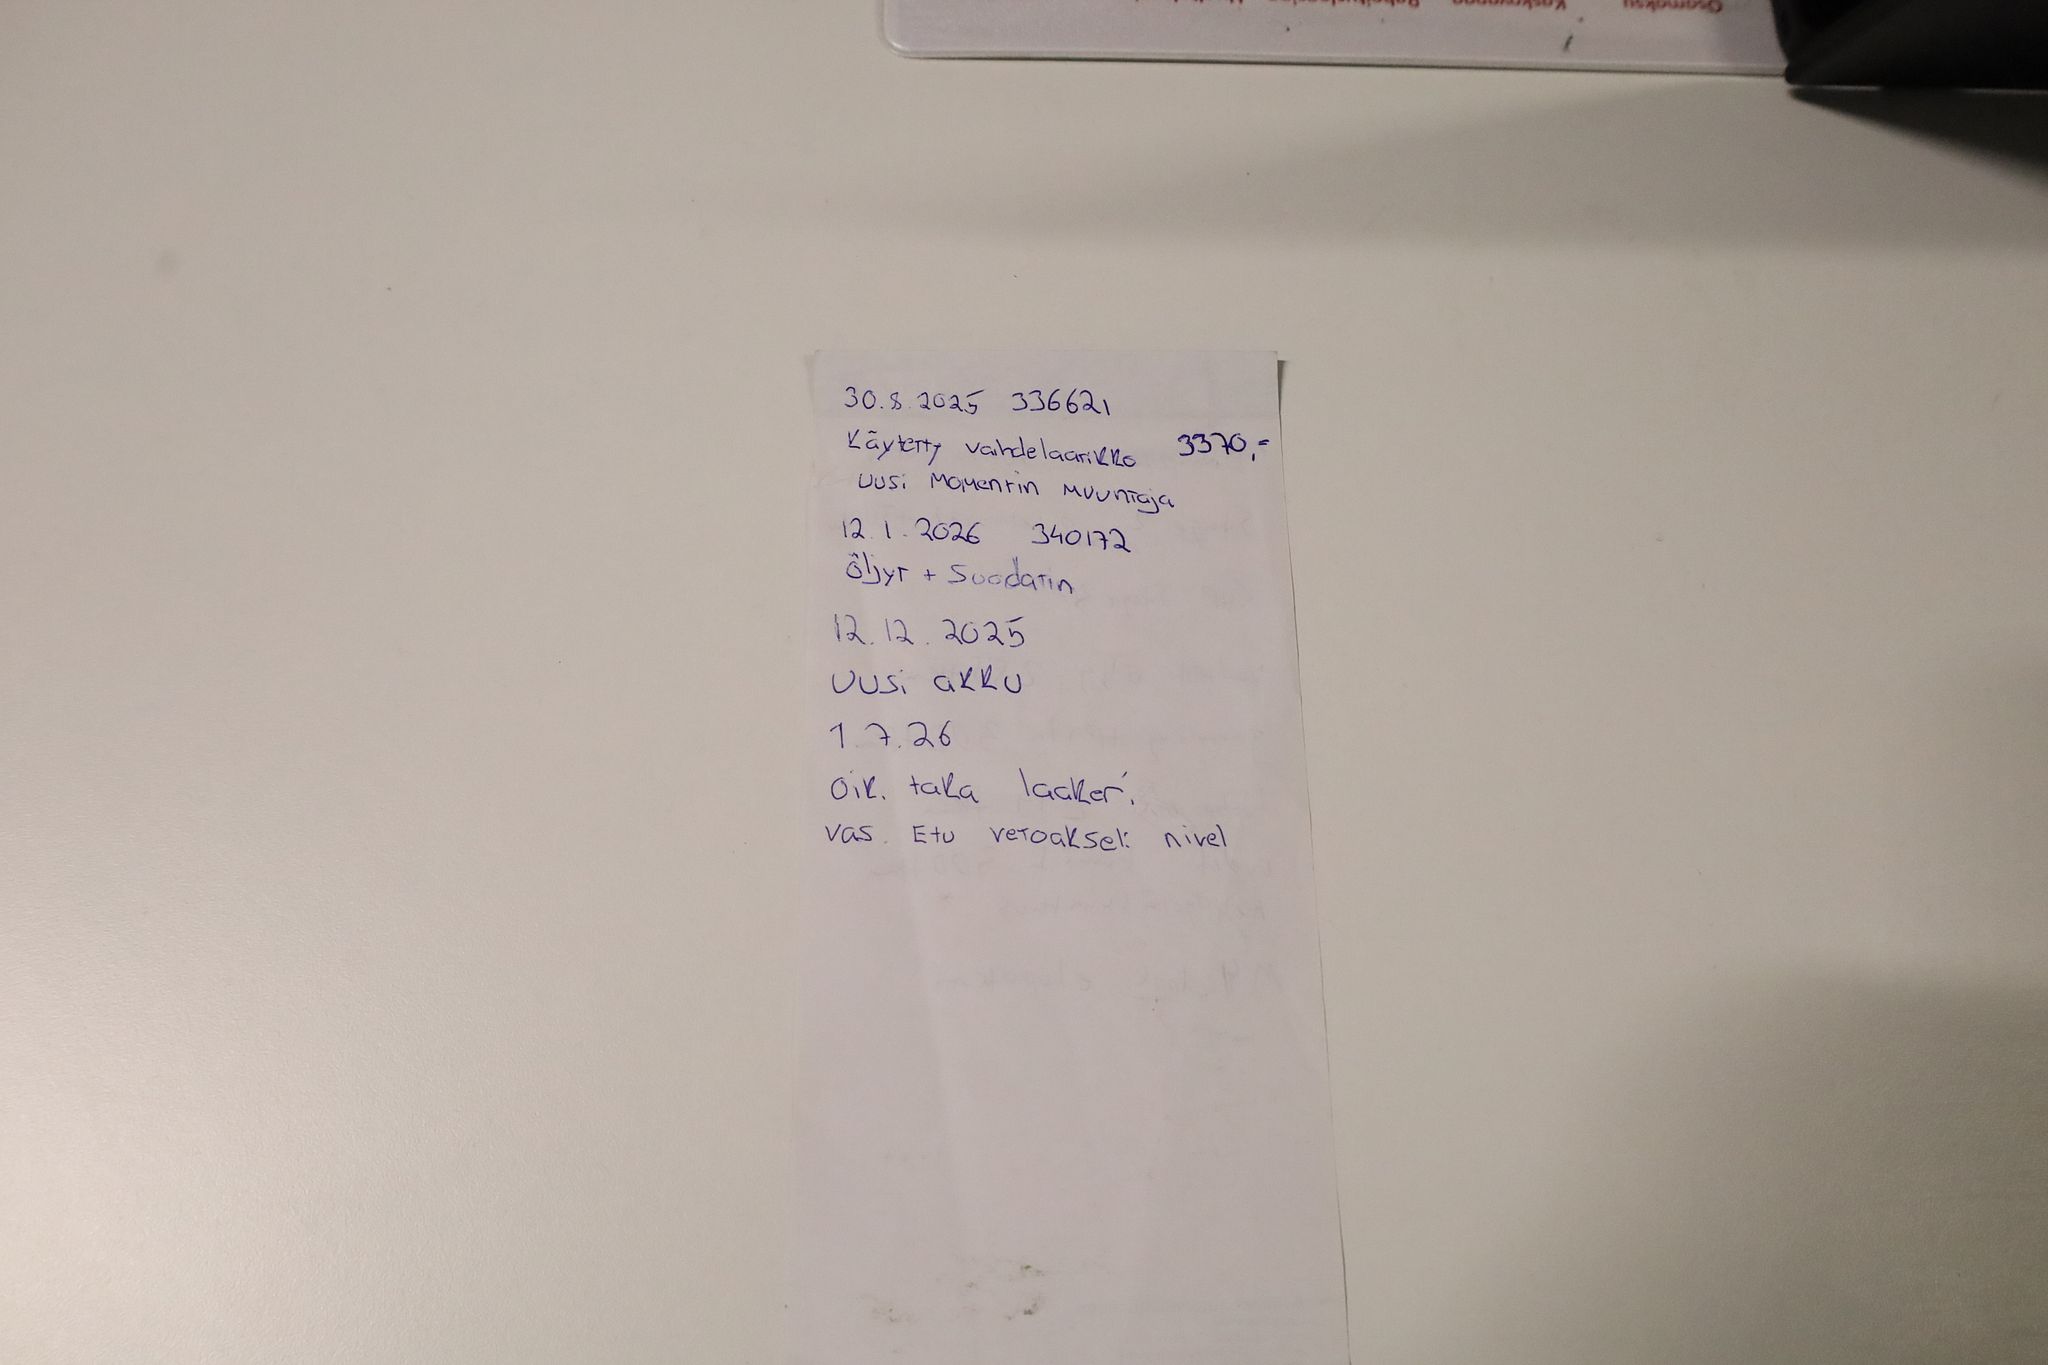 Osamaksu
30.8.2025 336621
Käytetty vaihdelaatikko 3370,-
uusi Momentin muuntaja
12.1.2026 340172
Öljyt + Suodatin
12.12.2025
Uusi akku
1.7.26
Oik. taka laakeri
vas. Etu vetoakseli nivel